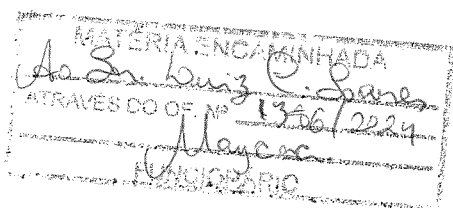 MATÉRIA ENCAMINHADA
Ao Sr. Luiz C. Soares
ATRAVÉS DO OF. Nº 1306/2024
Maycon
FUNCIONÁRIO